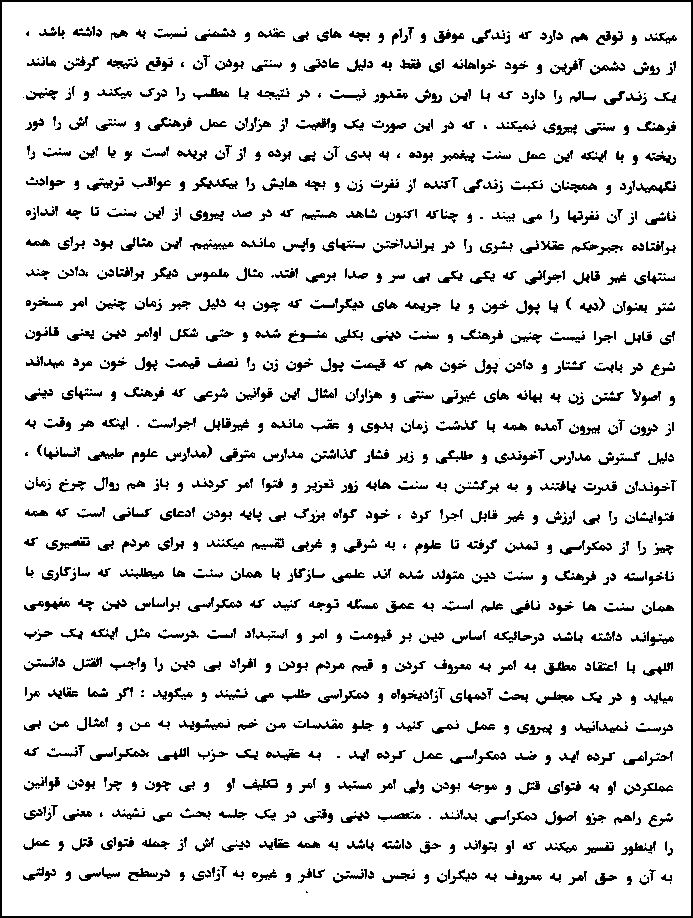 میکند و توقع هم دارد که زندگی موفق و آرام و بچه های بی عقده و دشمنی نسبت به هم داشته باشد ،
از روش دشمن آفرین و خود خواهانه ای فقط به دلیل عادتی و سنتی بودن آن ، توقع نتیجه گرفتن مانند
یک زندگی سالم را دارد که با این روش مقدور نیست ، در نتیجه یا مطلب را درک میکند و از چنین
فرهنگ و سنتی پیروی نمیکند ، که در این صورت یک واقعیت از هزاران عمل فرهنگی و سنتی اش را دور
ریخته و با اینکه این عمل سنت پیغمبر بوده ، به بدی آن پی برده و از آن بریده است .و یا این سنت را
نگهمیدارد و همچنان نکبت زندگی آکنده از نفرت زن و بچه هایش را بیکدیگر و عواقب تربیتی و حوادث
ناشی از آن نفرتها را می بیند . و چناکه اکنون شاهد هستیم که در صد پیروی از این سنت تا چه اندازه
برافتاده ،جبرحکم عقلانی بشری را در برانداختن سنتهای واپس مانده میبینیم. این مثالی بود برای همه
سنتهای غیر قابل اجرائی که یکی یکی بی سر و صدا برمی افتد. مثال ملموس دیگر برافتادن ،دادن چند
شتر بعنوان (دیه ) یا پول خون و یا جریمه های دیگراست که چون به دلیل جبر زمان چنین امر مسخره
ای قابل اجرا نیست چنین فرهنگ و سنت دینی بکلی منسوخ شده و حتی شکل اوامر دین یعنی قانون
شرع در بابت کشتار و دادن پول خون هم که قیمت پول خون زن را نصف قیمت پول خون مرد میداند
و اصولاً کشتن زن به بهانه های غیرتی سنتی و هزاران امثال این قوانین شرعی که فرهنگ و سنتهای دینی
از درون آن بیرون آمده همه با گذشت زمان بدوی و عقب مانده و غیرقابل اجراست . اینکه هر وقت به
دلیل گسترش مدارس آخوندی و طلبگی و زیر فشار گذاشتن مدارس مترقی (مدارس علوم طبیعی انسانها) ،
آخوندان قدرت یافتند و به برگشتن به سنت هابه زور تعزیر و فتوا امر کردند و باز هم روال چرخ زمان
فتوایشان را بی ارزش و غیر قابل اجرا کرد ، خود گواه بزرگ بی پایه بودن ادعای کسانی است که همه
چیز را از دمکراسی و تمدن گرفته تا علوم ، به شرقی و غربی تقسیم میکنند و برای مردم بی تقصیری که
ناخواسته در فرهنگ و سنت دین متولد شده اند علمی سازگار با همان سنت ها میطلبند که سازگاری با
همان سنت ها خود نافی علم است. به عمق مسئله توجه کنید که دمکراسی براساس دین چه مفهومی
میتواند داشته باشد درحالیکه اساس دین بر قیومت و امر و استبداد است .درست مثل اینکه یک حزب
اللهی با اعتقاد مطلق به امر به معروف کردن و قیم مردم بودن و افراد بی دین را واجب القتل دانستن
میاید و در یک مجلس بحث آدمهای آزادیخواه و دمکراسی طلب می نشیند و میگوید : اگر شما عقاید مرا
درست نمیدانید و پیروی و عمل نمی کنید و جلو مقدسات من خم نمیشوید به من و امثال من بی
احترامی کرده اید و ضد دمکراسی عمل کرده اید . به عقیده یک حزب اللهی ،دمکراسی آنست که
عملکردن او به فتوای قتل و موجه بودن ولی امر مستبد و امر و تکلیف او و بی چون و چرا بودن قوانین
شرع راهم جزو اصول دمکراسی بدانند . متعصب دینی وقتی در یک جلسه بحث می نشیند ، معنی آزادی
را اینطور تفسیر میکند که او بتواند و حق داشته باشد به همه عقاید دینی اش از جمله فتوای قتل و عمل
به آن و حق امر به معروف به دیگران و نجس دانستن کافر و غیره به آزادی و درسطح سیاسی و دولتی